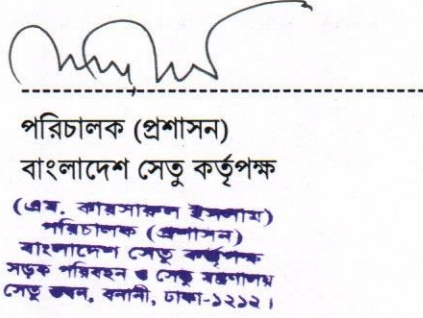 পরিচালক (প্রশাসন)
বাংলাদেশ সেতু কর্তৃপক্ষ
(এম. কায়সারুল ইসলাম)
পরিচালক (প্রশাসন)
বাংলাদেশ সেতু কর্তৃপক্ষ
সড়ক পরিবহন ও সেতু মন্ত্রণালয়
সেতু ভবন, বনানী, ঢাকা-১২১২।